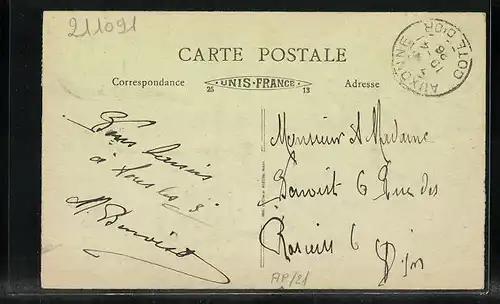 211091
CARTE POSTALE
Correspondance
UNIS-FRANCE
25
13
Adresse
AUXONNE
CÔTE D'OR
Bons baisers
à tous les 3
M. Benoist
Monsieur & Madame
Benoist 6 Rue des
Rosiers 6
Dijon
AP/21